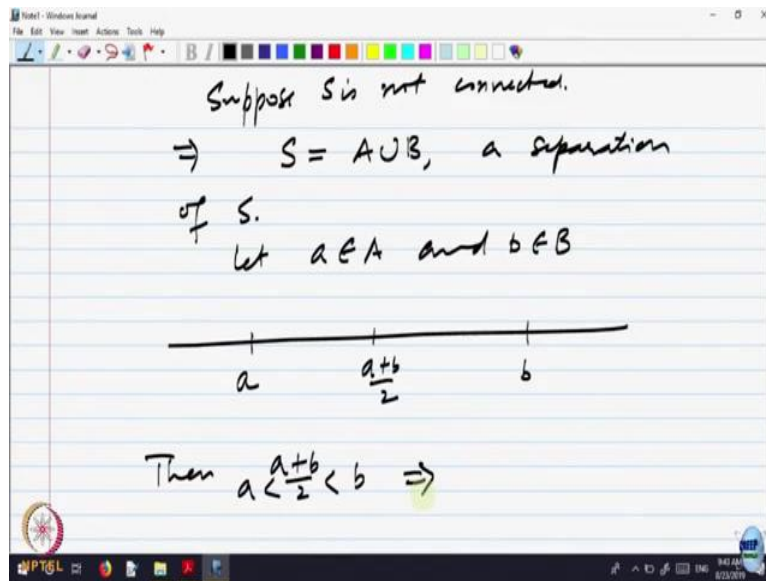 Note1 - Windows Journal
File Edit View Insert Actions Tools Help
Suppose S is not connected.
⇒ S = A∪B, a separation
of S.
Let a∈A and b∈B
a (a+b)/2 b
Then a < (a+b)/2 < b ⇒
NPTEL
ENG 9:40 AM
8/23/2019